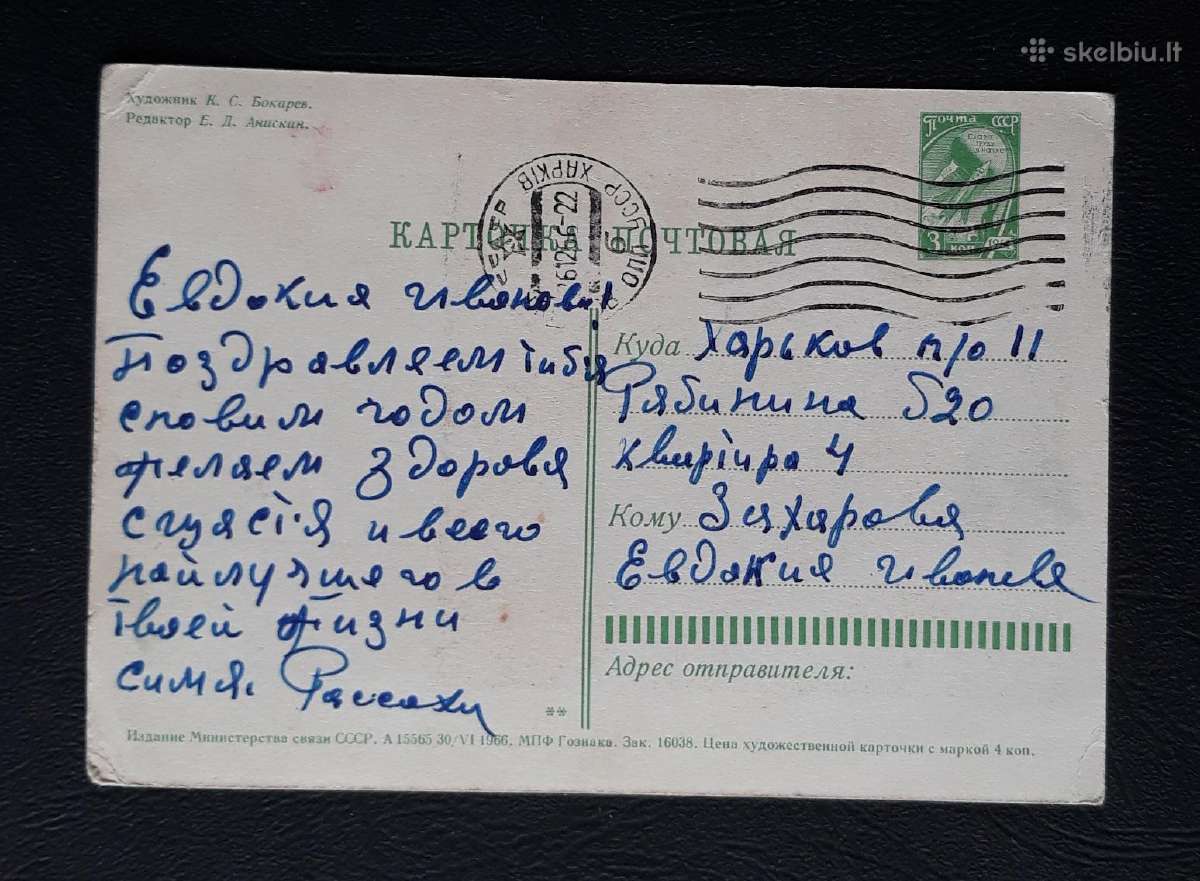 skelbiu.lt
Художник К. С. Бокарев.
Редактор Е. Д. Анискин.
Почта СССР
3 коп
УССР ХАРКІВ
КАРТОЧКА ПОЧТОВАЯ
Евдокия Ивяновн
Поздравляем тибя
сповим годом
желяем здоровя
сщястія и всего
найлучшяго в
твяей жизни
симя. Рассохи
Куда Харьков п/о 11
Рябинина Б20
квиртіра 4
Кому Зяхаровя
Евдокия Ивоневя
Адрес отправителя:
**
Издание Министерства связи СССР. А 15565 30/VI 1966. МПФ Гознака. Зак. 16038. Цена художественной карточки с маркой 4 коп.